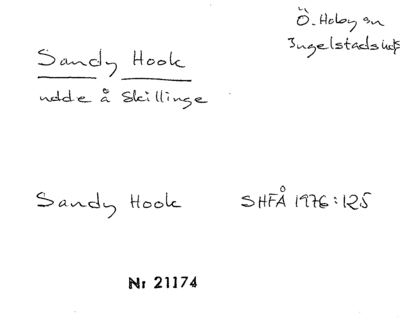 Ö. Hoby sn
Ingelstads hd
Sandy Hook
udde å Skillinge
Sandy Hook SHFÅ 1976:125
Nr 21174